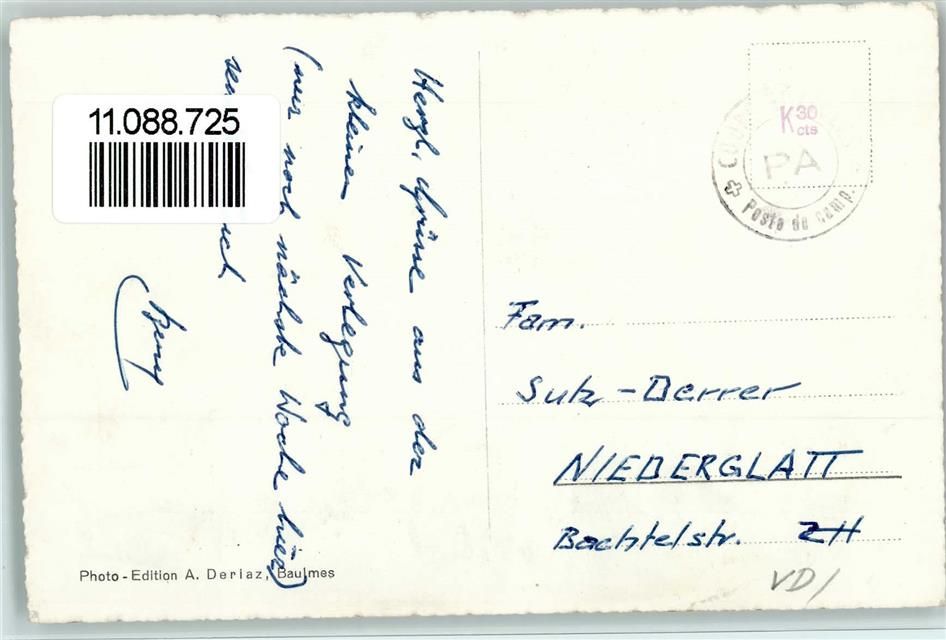 11.088.725
Herzl. Grüsse aus der
kleinen Verlegung
(nur noch nächste Woche hier)
Beny
Photo-Edition A. Deriaz, Baulmes
K 30
cts
PA
Poste de camp.
Fam.
Sutz-Derrer
NIEDERGLATT
Bachtelstr. ZH
VD/